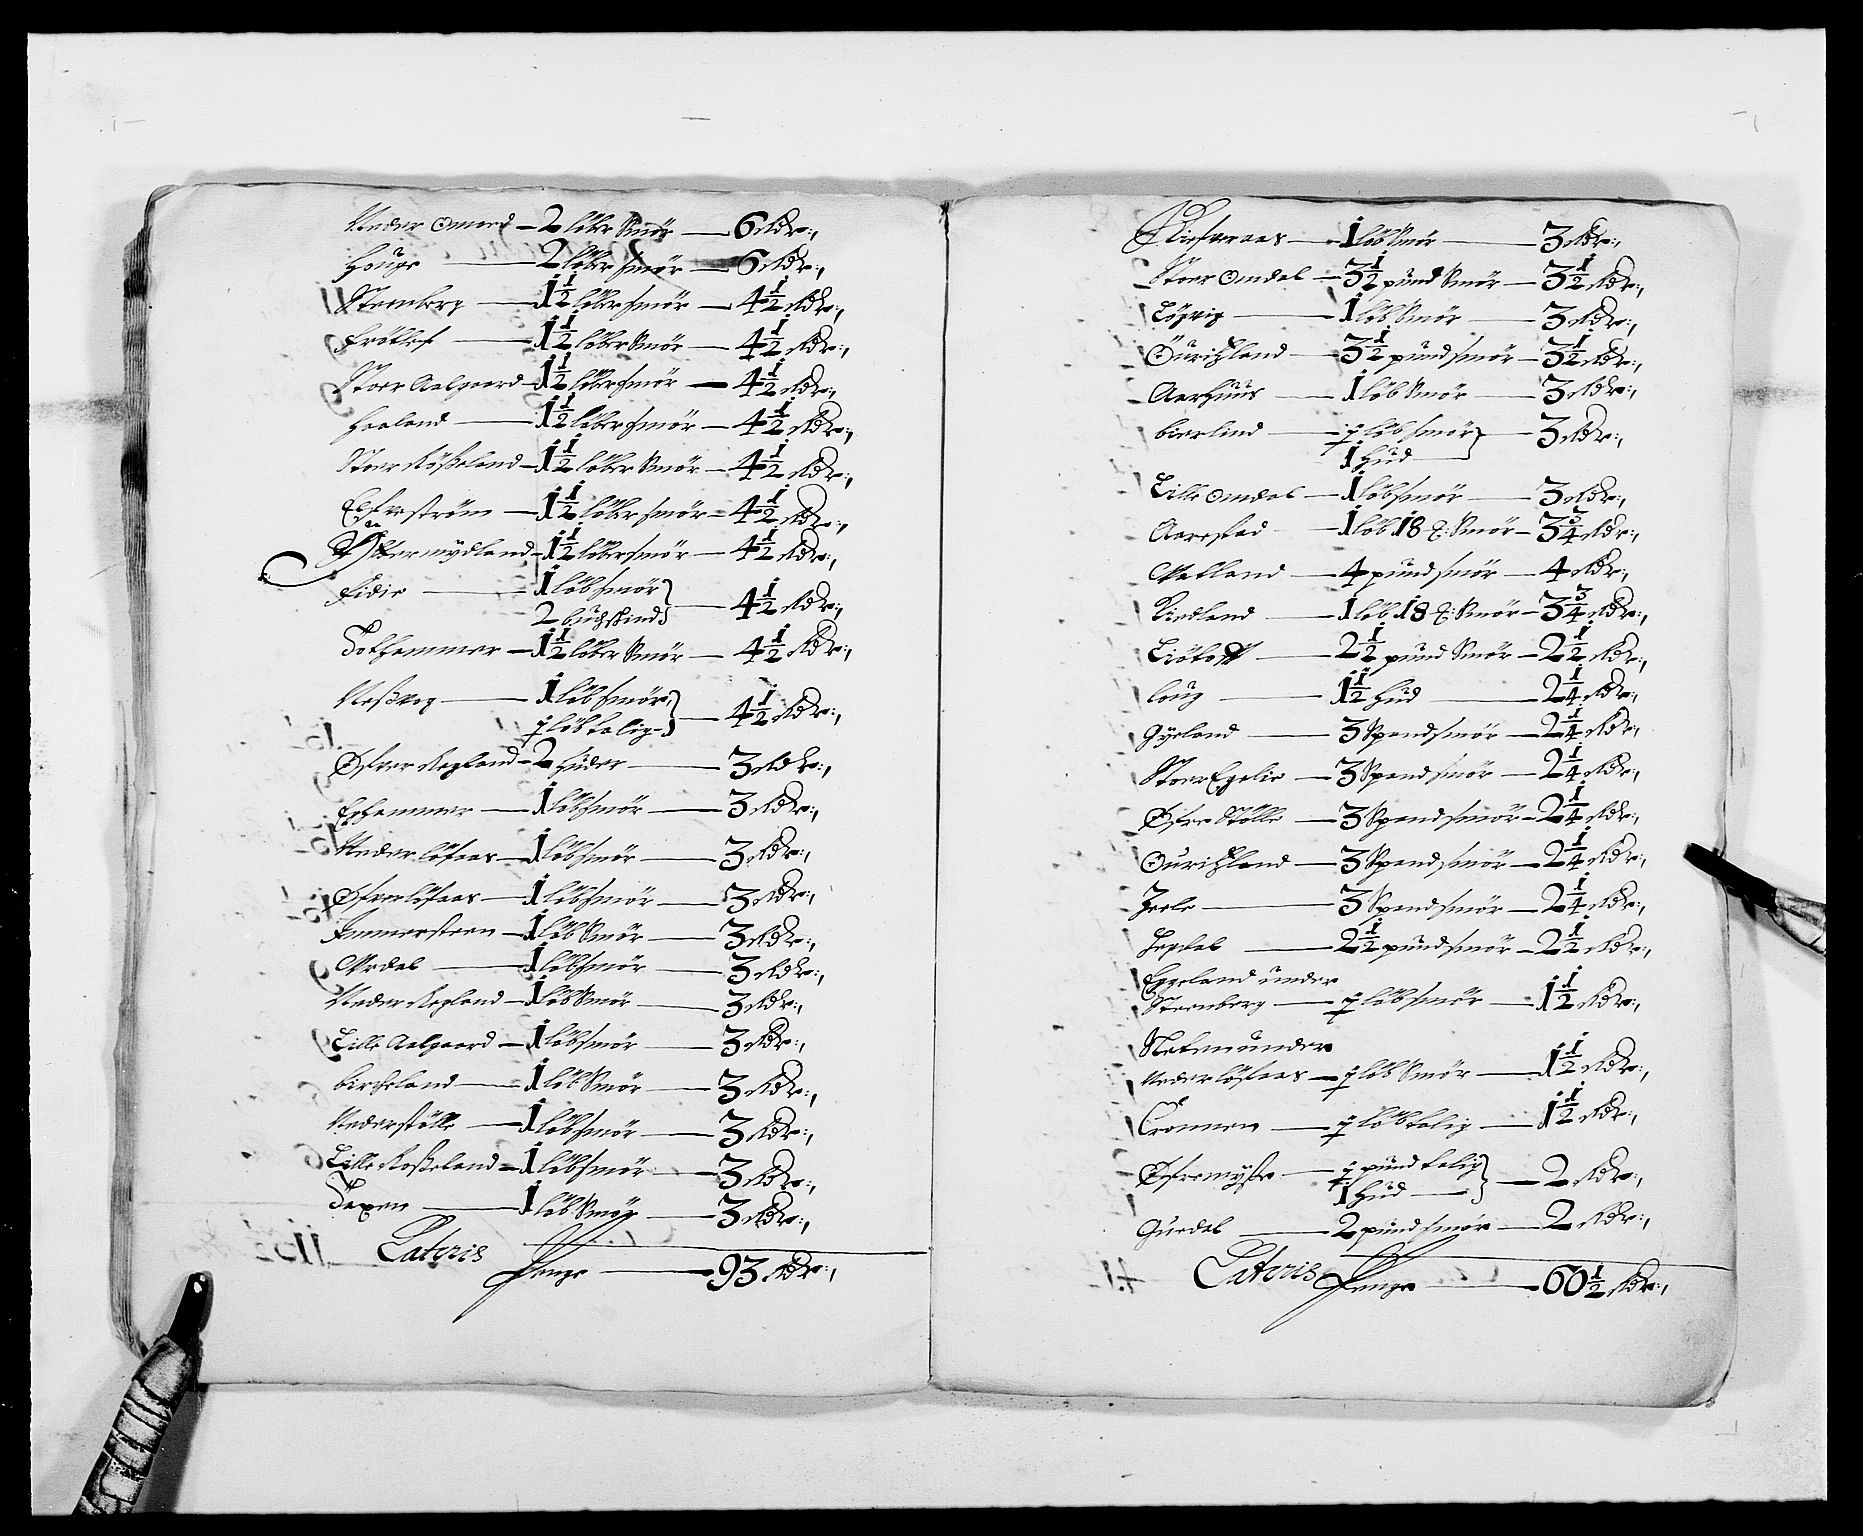 Neder Omerd – 2 løber Smør – 6 Rdr:,
Houge – 2 løber smør – 6 Rdr:,
Steenberg – 1½ løber smør – 4½ Rdr:,
Frøtlef – 1½ løber Smør – 4½ Rdr:,
Stoer Aalgaard – 1½ løber smør – 4½ Rdr:,
Haaland – 1½ løber smør – 4½ Rdr:,
Stoer Røßeland – 1½ løber Smør – 4½ Rdr:,
Egestrøm – 1½ løber smør – 4½ Rdr:,
Yttermydland – 1½ løber smør – 4½ Rdr:,
Eidie – 1 løb smør }
2 buchskind } – 4½ Rdr:,
Tothammer – 1½ løber Smør – 4½ Rdr:,
Neßvog – 1 løb smør }
½ løb talig } – 4½ Rdr:,
Øfver Regland – 2 huder – 3 Rdr:,
Eghammer – 1 løb smør – 3 Rdr:,
Neder løfaas – 1 løb smør – 3 Rdr:,
Øfver løfaas – 1 løb smør – 3 Rdr:,
Immersteen – 1 løb Smør – 3 Rdr:,
Ordal – 1 løb smør – 3 Rdr:,
Neder Regland – 1 løb Smør – 3 Rdr:,
Lille Aalgaard – 1 løb smør – 3 Rdr:,
birkeland – 1 løb Smør – 3 Rdr:,
Nederstølle – 1 løb smør – 3 Rdr:,
Lille Roßeland – 1 løb smør – 3 Rdr:,
Texen – 1 løb Smør – 3 Rdr:,
Lateris Penge – 93 Rdr:,
– 1 løb Smør – 3 Rdr:,
Stoer Omdal – 3½ pund Smør – 3½ Rdr:,
Løgvig – 1 løb Smør – 3 Rdr:,
Ourißland – 3½ pund smør – 3½ Rdr:,
Aarhuus – 1 løb Smør – 3 Rdr:,
bierlind – ½ løb smør }
1 Hud } – 3 Rdr:,
Lille Omdal – 1 løb smør – 3 Rdr:,
Aarestad – 1 løb 18 ℔: Smør – 3¾ Rdr:,
Matland – 4 pund smør – 4 Rdr:,
Rindland – 1 løb 18 ℔: Smør – 3¾ Rdr:,
Liøtost – 2½ pund Smør – 2½ Rdr:,
loug – 1½ Hud – 2¼ Rdr:,
Gyeland – 3 Spand smør – 2¼ Rdr:,
Stoer Egelie – 3 Spand smør – 2¼ Rdr:,
Øfre Stølle – 3 Spand smør – 2¼ Rdr:,
Ourißland – 3 Spand smør – 2¼ Rdr:,
– 3 Spand smør – 2¼ Rdr:,
– 2½ pund smør – 2½ Rdr:,
Eggeland under
Steenberg – ½ løb smør – 1½ Rdr:,
under
Nederløfaas – ½ løb Smør – 1½ Rdr:,
Cronnen – ½ løb talig – 1½ Rdr:,
Øfremyße – ½ pund talig }
1 Hud } – 2 Rdr:,
Gurdal – 2 pund smør – 2 Rdr:,
Lateris Penge – 60½ Rdr:,